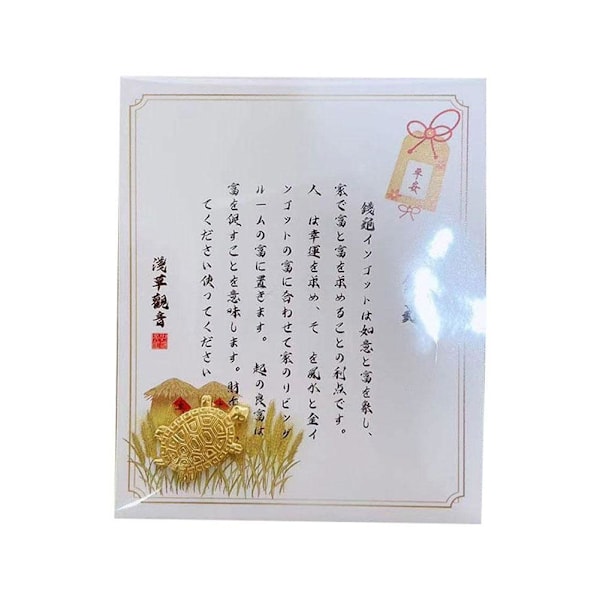 平安
錢龜インゴットは如意と富を象し、
家で富と富を求めることの利点です。
人 は幸運を求め、そ を風水と金イ
ンゴットの富に合わせて家のリビング
ルームの富に置きます。 起の良富は
富を促すことを意味します。財
てください使ってください
淺草觀音